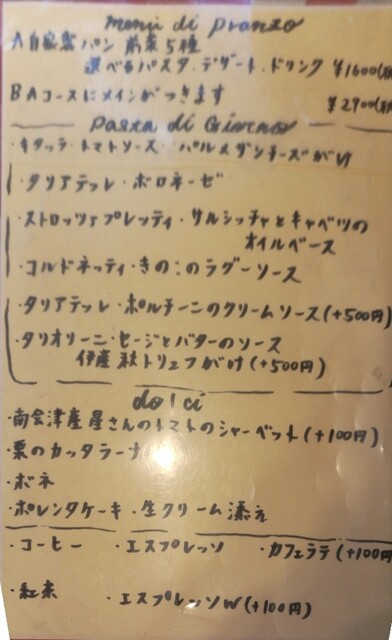 menù di pranzo
A 自家製パン 前菜5種
選べるパスタ、デザート、ドリンク ¥1600(税
B Aコースにメインがつきます ¥2900(税
Pasta di Giorno
・キタッラ・トマトソース・パルメザンチーズがけ
・タリアテッレ・ボロネーゼ
・ストロッツァプレッティ・サルシッチャとキャベツの
オイルベース
・コルドネッティ・きのこのラグーソース
・タリアテッレ・ポルチーニのクリームソース(+500円)
・タリオリーニ・セージとバターのソース
伊産 秋トリュフがけ(+500円)
dolci
・南会津産 星さんのトマトのシャーベット(+100円)
・栗のカッタラーナ
・ボネ
・ポレンタケーキ・生クリーム添え
・コーヒー ・エスプレッソ ・カフェラテ(+100円
・紅茶 ・エスプレッソW(+100円)